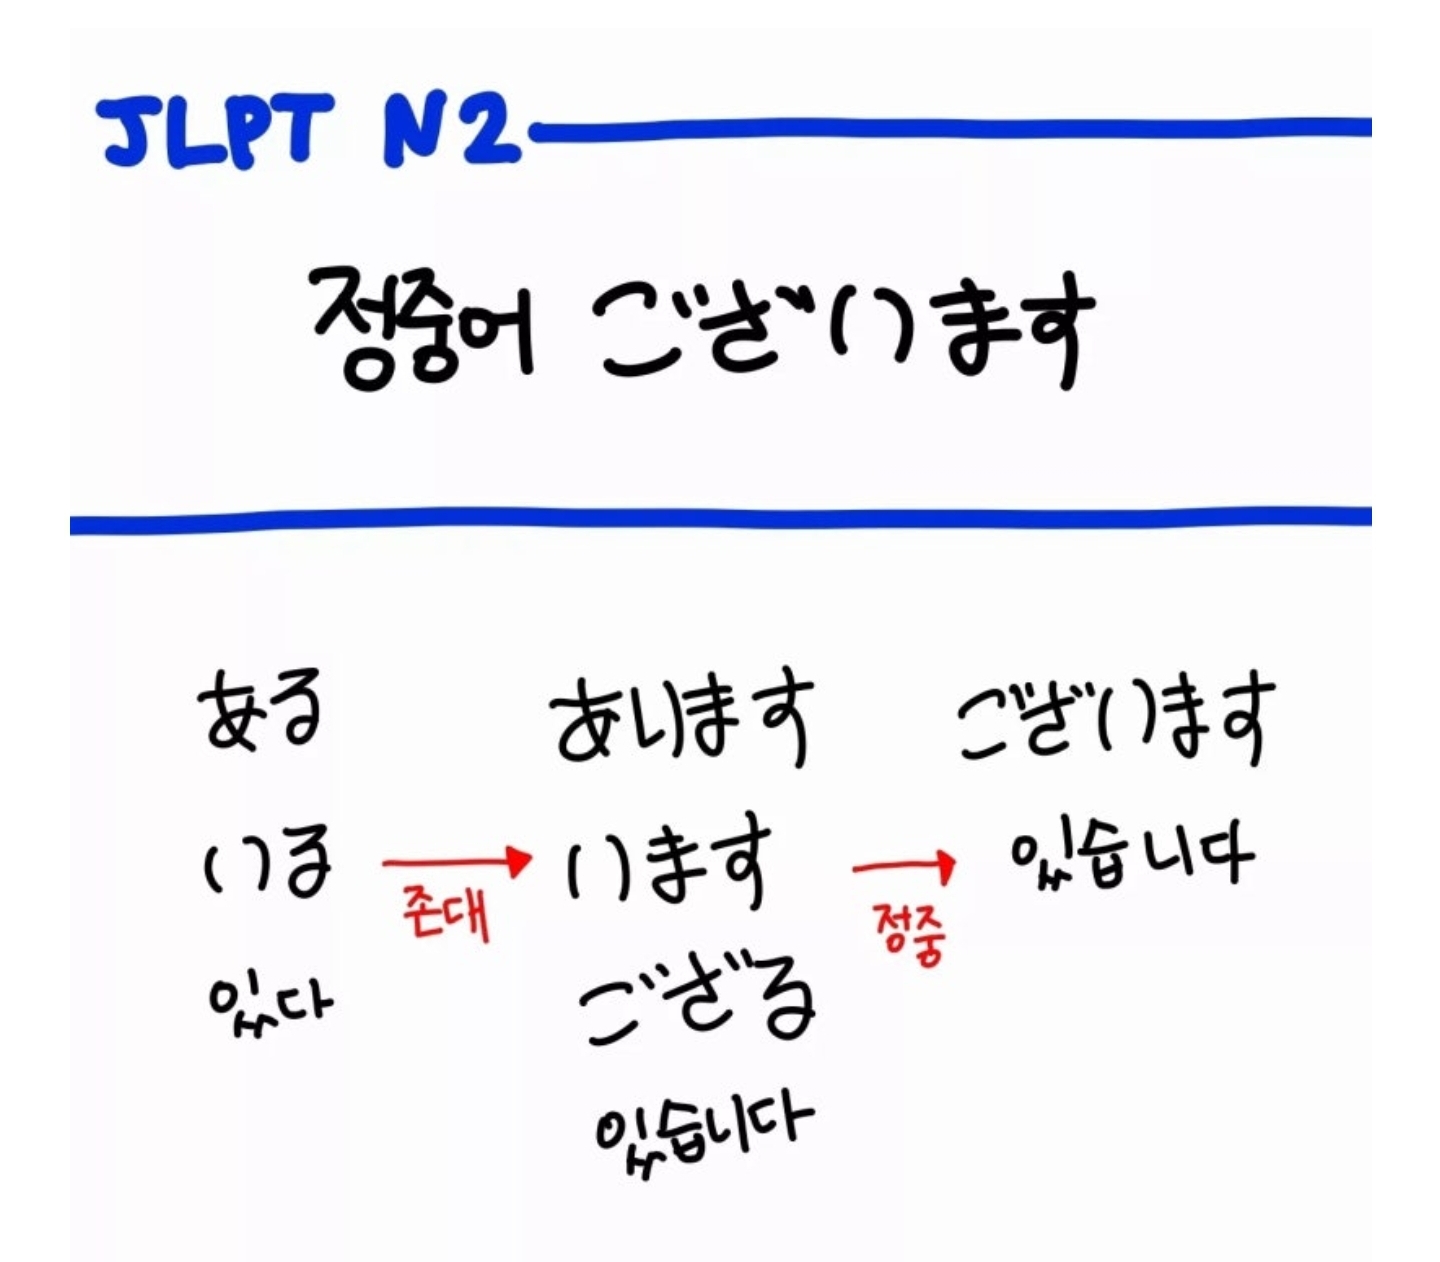 JLPT N2
정중어 ございます
ある あります ございます
いる います 있습니다
존대 정중
있다 ござる
있습니다